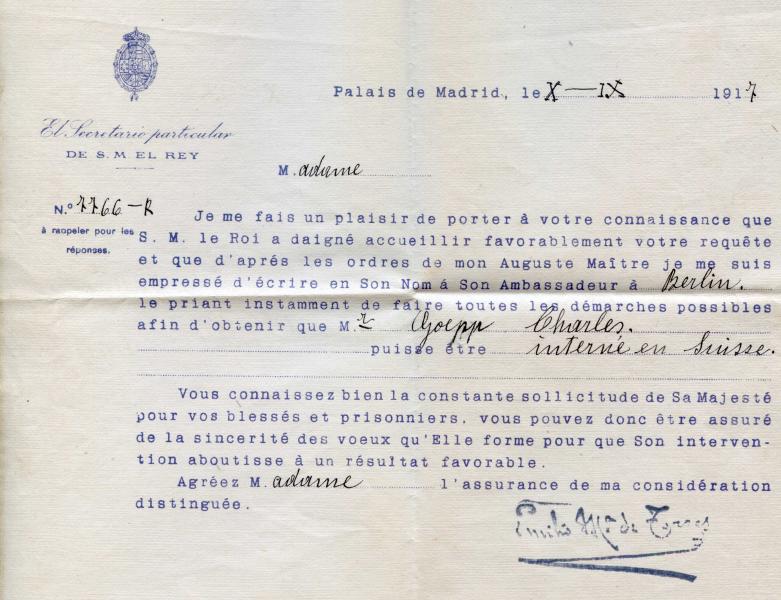 Palais de Madrid, le X — IX 1917
El Secretario particular
DE S. M EL REY
M. adame
N.º 7766 – R
à rappeler pour les
réponses.
Je me fais un plaisir de porter à votre connaissance que
S. M. le Roi a daigné accueillir favorablement votre requête
et que d'aprés les ordres de mon Auguste Maître je me suis
empressé d'écrire en Son Nom á Son Ambassadeur à Berlin.
le priant instamment de faire toutes les démarches possibles
afin d'obtenir que M. r Goepp Charles.
puisse étre interné en Suisse.
Vous connaissez bien la constante sollicitude de Sa Majesté
pour vos blessés et prisonniers, vous pouvez donc être assuré
de la sincerité des voeux qu'Elle forme pour que Son interven-
tion aboutisse à un résultat favorable.
Agréez M. adame l'assurance de ma considération
distinguée.
Emilio Mª de Torres